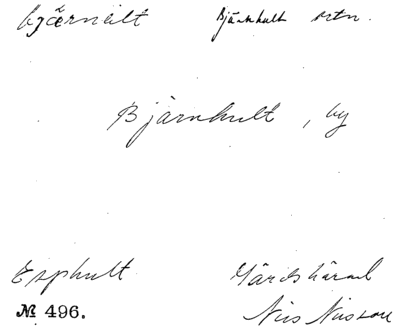 Bjärnhult ortn.
Bjärnhult, by
Esphult Gärds härad
№ 496. Nils Nilsson